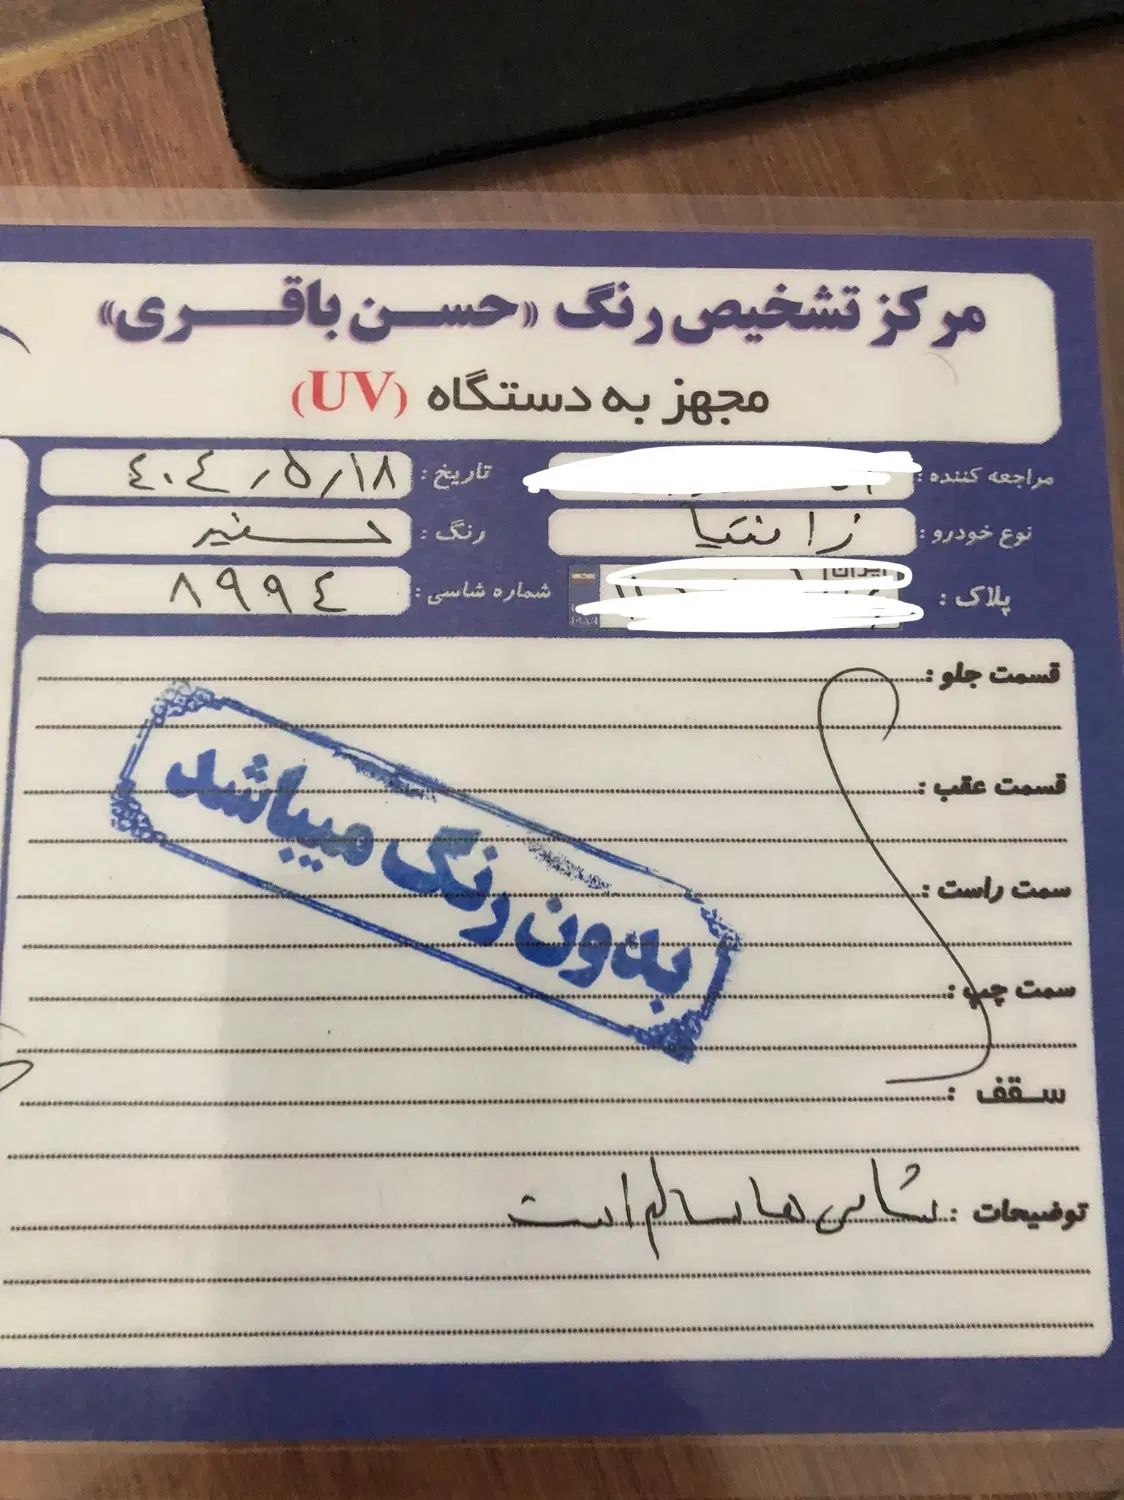 مرکز تشخیص رنگ «حسن باقری»
مجهز به دستگاه (UV)
مراجعه کننده :
تاریخ : ٤٠٤/٥/١٨
نوع خودرو : زانتیا
رنگ : سفید
پلاک : ایران
شماره شاسی : ٨٩٩٤
قسمت جلو :
قسمت عقب :
سمت راست :
سمت چپ :
سقف :
بدون رنگ میباشد
توضیحات : شاسی ها سالم است